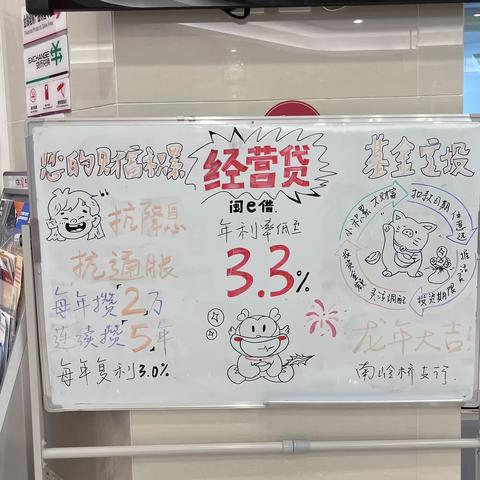 EXCHANGE
您的财富积累
抗降息
抗通胀
每年攒2万
连续攒5年
每年复利3.0%
经营贷
闽e借
年利率低至
3.3%
基金定投
小积累 大财富
扣款日期
任意选
投资期限
灵活调配
龙年大吉!
南岭桥支行.